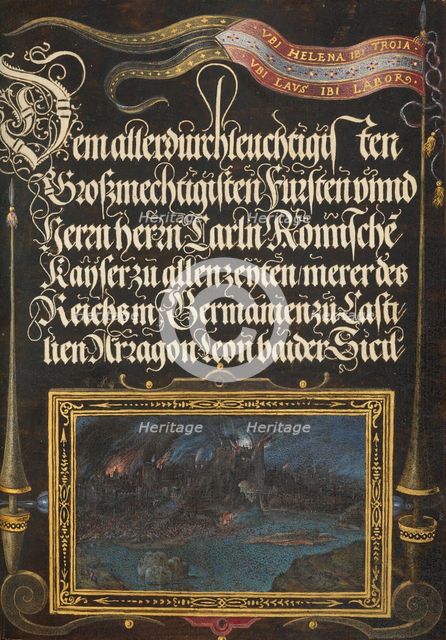 VBI HELENA IBI TROIA
VBI LAVS IBI LABOR
Dem allerdurchleuchtigisten
Großmechtigisten Fürsten vnnd
Herrn herrn Carln Römische
Kayser zu allen zeyten merer des
Reichs in Germanien zu Casti
lien Arragon Leon baider Sicil
Heritage
Heritage
Heritage
Heritage